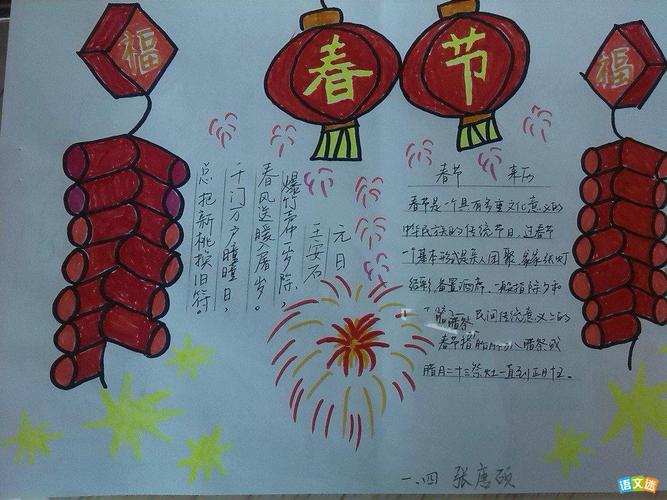 福
春节
福
元日
王安石
爆竹声中一岁除，
春风送暖入屠苏。
千门万户曈曈日，
总把新桃换旧符。
春节 来历
春节是个具有多重文化意义的
中华民族的传统节日，过春节
一个基本形式是亲人团聚
结彩备置酒席，一般指除夕和
民间传统意义上的
春节指腊月
腊月二十三祭灶一直到正月十五。
一、四 张唐硕
语文迷